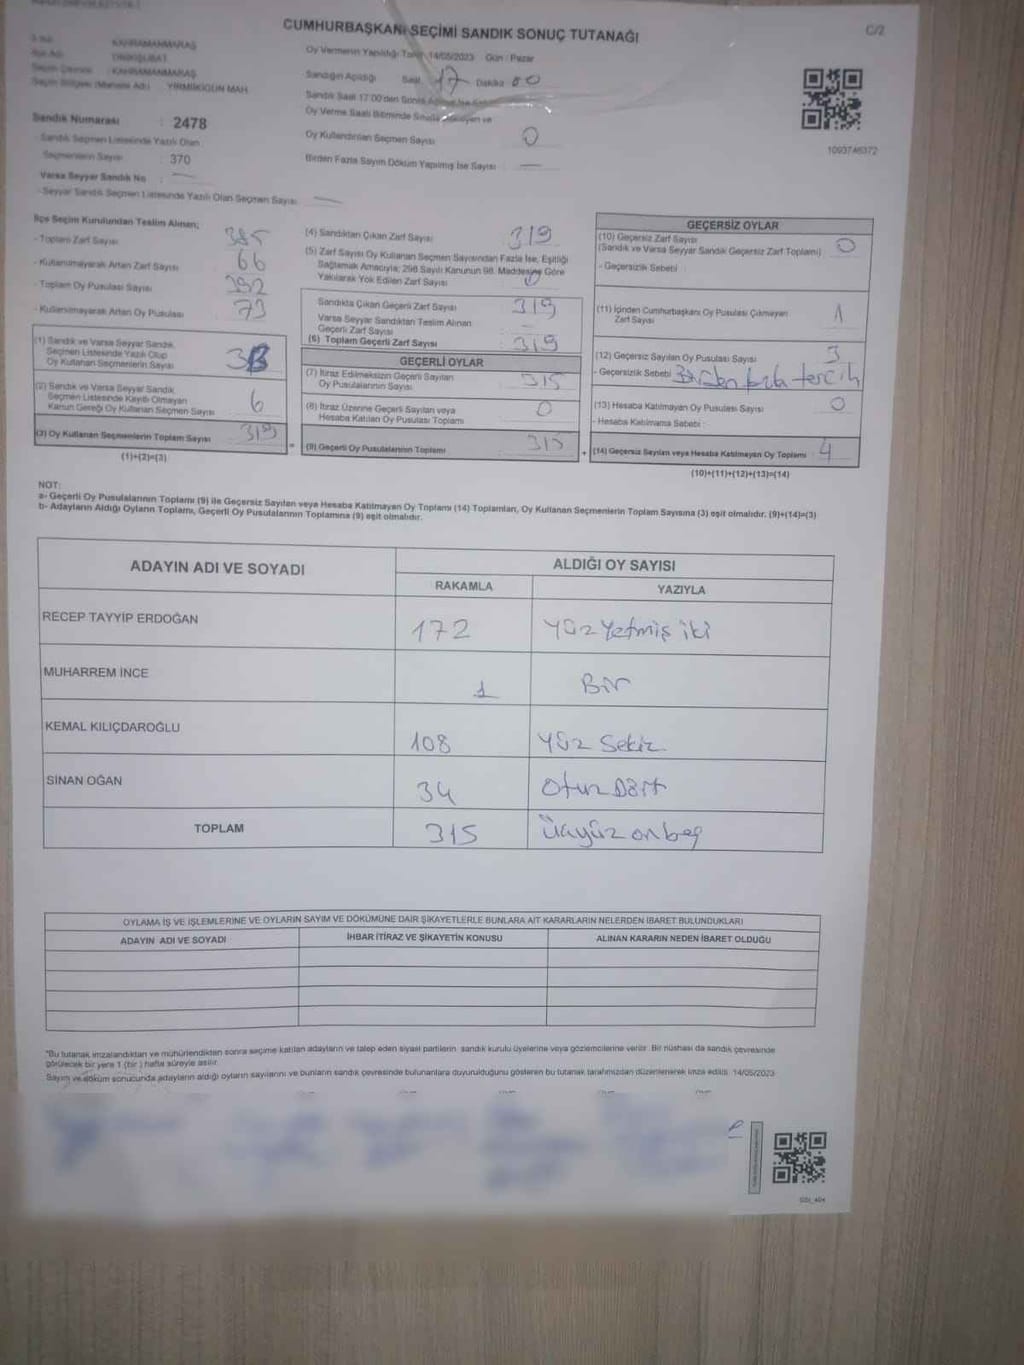 CUMHURBAŞKANI SEÇİMİ SANDIK SONUÇ TUTANAĞI
C/2
KAHRAMANMARAŞ
ONİKİŞUBAT
KAHRAMANMARAŞ
Seçim Bölgesi (Mahalle Adı) YİRMİİKİGÜN MAH.
Sandık Numarası : 2478
- Sandık Seçmen Listesinde Yazılı Olan
Seçmenlerin Sayısı : 370
Varsa Seyyar Sandık No : —
- Seyyar Sandık Seçmen Listesinde Yazılı Olan Seçmen Sayısı : —
Oy Vermenin Yapıldığı Tarih: 14/05/2023 Gün : Pazar
Sandığın Açıldığı Saat: 17 Dakika 00
Oy Kullandırılan Seçmen Sayısı 0
Birden Fazla Sayım Döküm Yapılmış İse Sayısı —
1093746372
İlçe Seçim Kurulundan Teslim Alınan;
- Toplam Zarf Sayısı 385
- Kullanılmayarak Artan Zarf Sayısı 66
- Toplam Oy Pusulası Sayısı
- Kullanılmayarak Artan Oy Pusulası
(1) Sandık ve Varsa Seyyar Sandık
Seçmen Listesinde Yazılı Olup
Oy Kullanan Seçmenlerin Sayısı
(2) Sandık ve Varsa Seyyar Sandık
Seçmen Listesinde Kayıtlı Olmayan
Kanun Gereği Oy Kullanan Seçmen Sayısı 6
(3) Oy Kullanan Seçmenlerin Toplam Sayısı 319
(1)+(2)=(3)
(4) Sandıktan Çıkan Zarf Sayısı 319
(5) Zarf Sayısı Oy Kullanan Seçmen Sayısından Fazla İse, Eşitliği
Sağlamak Amacıyla; 298 Sayılı Kanunun 98. Maddesine Göre
Yakılarak Yok Edilen Zarf Sayısı 0
Sandıkta Çıkan Geçerli Zarf Sayısı 319
Varsa Seyyar Sandıktan Teslim Alınan
Geçerli Zarf Sayısı —
(6) Toplam Geçerli Zarf Sayısı 319
GEÇERLİ OYLAR
(7) İtiraz Edilmeksizin Geçerli Sayılan
Oy Pusulalarının Sayısı 315
(8) İtiraz Üzerine Geçerli Sayılan veya
Hesaba Katılan Oy Pusulası Toplamı 0
(9) Geçerli Oy Pusulalarının Toplamı 315
GEÇERSİZ OYLAR
(10) Geçersiz Zarf Sayısı
(Sandık ve Varsa Seyyar Sandık Geçersiz Zarf Toplamı) 0
- Geçersizlik Sebebi :
(11) İçinden Cumhurbaşkanı Oy Pusulası Çıkmayan
Zarf Sayısı 1
(12) Geçersiz Sayılan Oy Pusulası Sayısı 3
- Geçersizlik Sebebi : Birden fazla tercih
(13) Hesaba Katılmayan Oy Pusulası Sayısı 0
- Hesaba Katılmama Sebebi :
(14) Geçersiz Sayılan veya Hesaba Katılmayan Oy Toplamı 4
(10)+(11)+(12)+(13)=(14)
NOT:
a- Geçerli Oy Pusulalarının Toplamı (9) ile Geçersiz Sayılan veya Hesaba Katılmayan Oy Toplamı (14) Toplamları, Oy Kullanan Seçmenlerin Toplam Sayısına (3) eşit olmalıdır. (9)+(14)=(3)
b- Adayların Aldığı Oyların Toplamı, Geçerli Oy Pusulalarının Toplamına (9) eşit olmalıdır.
ADAYIN ADI VE SOYADI
ALDIĞI OY SAYISI
RAKAMLA YAZIYLA
RECEP TAYYİP ERDOĞAN 172 Yüz Yetmiş iki
MUHARREM İNCE 1 Bir
KEMAL KILIÇDAROĞLU 108 Yüz Sekiz
SİNAN OĞAN 34 Otuz Dört
TOPLAM 315 Üçyüz onbeş
OYLAMA İŞ VE İŞLEMLERİNE VE OYLARIN SAYIM VE DÖKÜMÜNE DAİR ŞİKAYETLERLE BUNLARA AİT KARARLARIN NELERDEN İBARET BULUNDUKLARI
ADAYIN ADI VE SOYADI İHBAR İTİRAZ VE ŞİKAYETİN KONUSU ALINAN KARARIN NEDEN İBARET OLDUĞU
"Bu tutanak imzalandıktan ve mühürlendikten sonra seçime katılan adayların ve talep eden siyasi partilerin sandık kurulu üyelerine veya gözlemcilerine verilir. Bir nüshası da sandık çevresinde
görülecek bir yere 1 (bir ) hafta süreyle asılır.
Sayım ve döküm sonucunda adayların aldığı oyların sayılarını ve bunların sandık çevresinde bulunanlara duyurulduğunu gösteren bu tutanak tarafımızdan düzenlenerek imza edildi. 14/05/2023